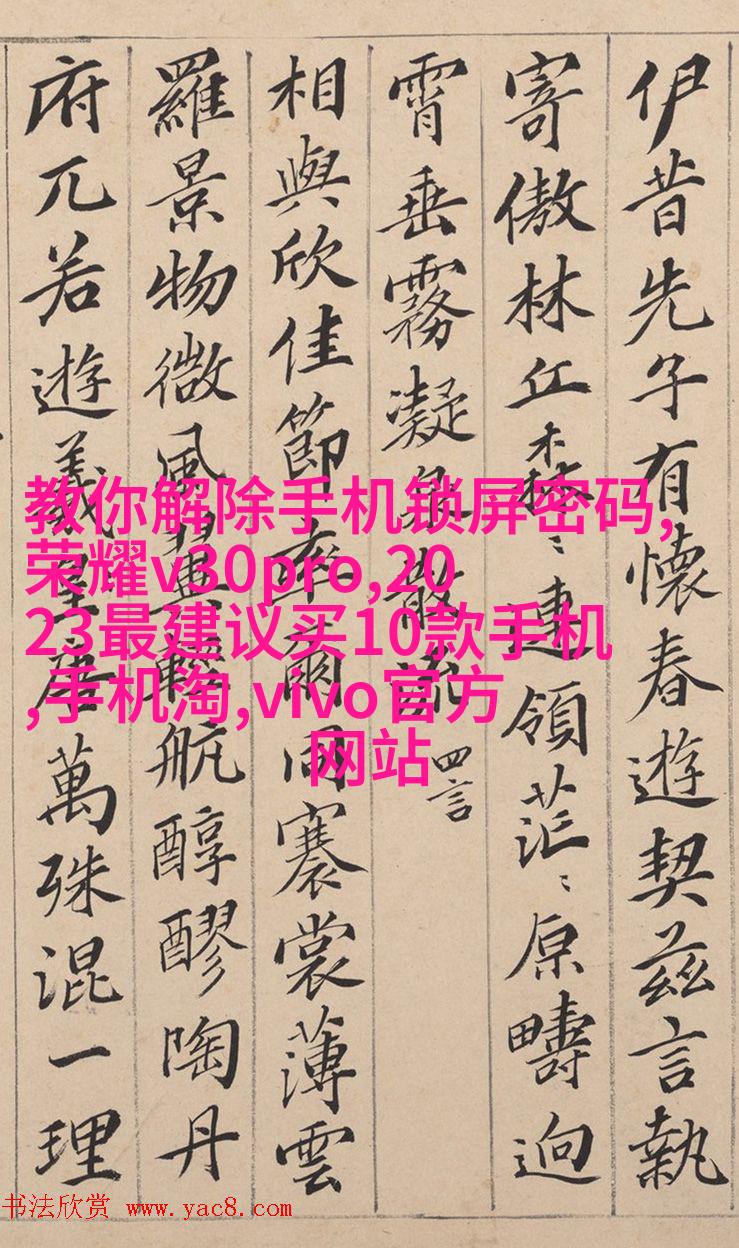 伊昔先子有懷春遊契茲言執
寄傲林丘森〻連領茫〻原疇迥
霄垂霧凝泉散流 四言
相與欣佳節率爾同褰裳薄雲
羅景物微風翼輕航醇醪陶丹
府兀若遊羲皇唐萬殊混一理
教你解除手机锁屏密码,
荣耀v30pro,20
23最建议买10款手机
,手机淘,vivo官方
网站
书法欣赏 www.yac8.com